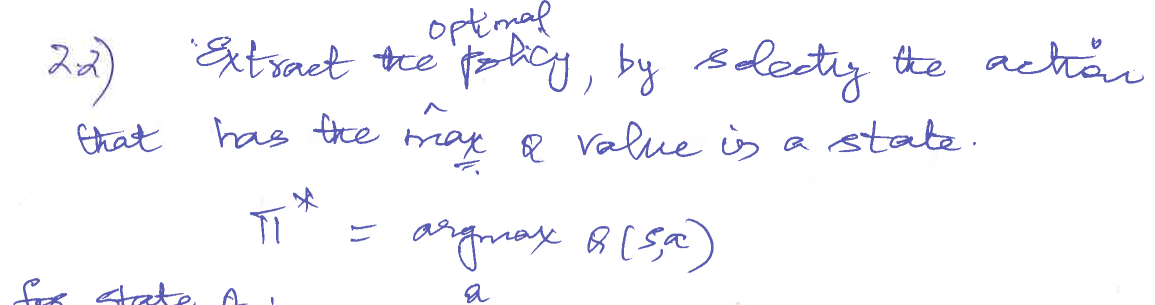 2.2) Extract the optimal policy, by selectig the action
that has the max Q value is a state.
π* = argmax Q(s,a)
a
for state A: